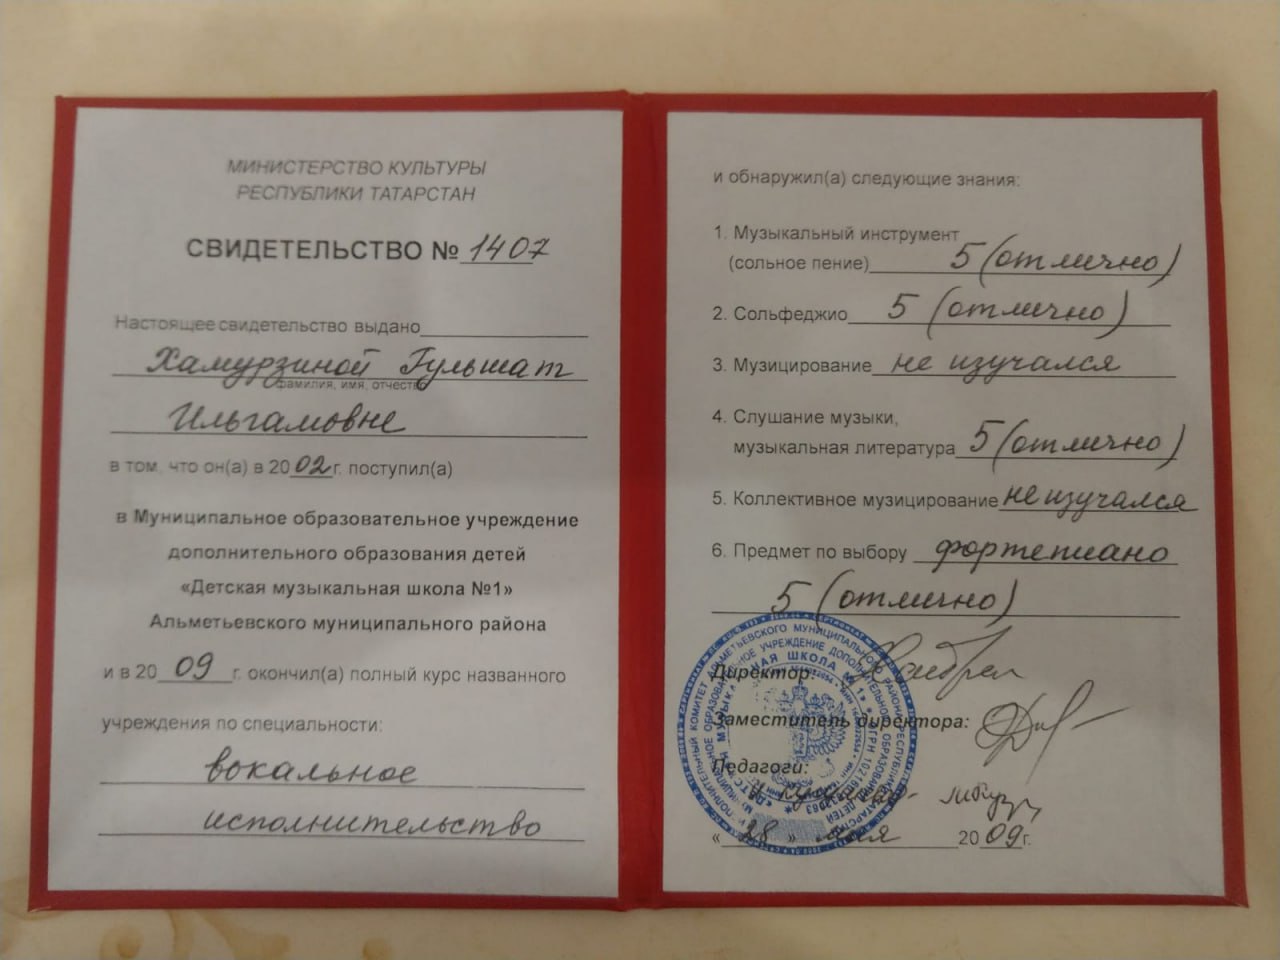 МИНИСТЕРСТВО КУЛЬТУРЫ
РЕСПУБЛИКИ ТАТАРСТАН
СВИДЕТЕЛЬСТВО № 1407
Настоящее свидетельство выдано
Хамурзиной Гульшат
фамилия, имя, отчество
Ильгамовне
в том, что он(а) в 2002 г. поступил(а)
в Муниципальное образовательное учреждение
дополнительного образования детей
«Детская музыкальная школа №1»
Альметьевского муниципального района
и в 2009 г. окончил(а) полный курс названного
учреждения по специальности:
вокальное
исполнительство
и обнаружил(а) следующие знания:
1. Музыкальный инструмент
(сольное пение) 5 (отлично)
2. Сольфеджио 5 (отлично)
3. Музицирование не изучался
4. Слушание музыки,
музыкальная литература 5 (отлично)
5. Коллективное музицирование не изучался
6. Предмет по выбору фортепиано
5 (отлично)
Директор:
Заместитель директора:
Педагоги:
«28» мая 2009 г.